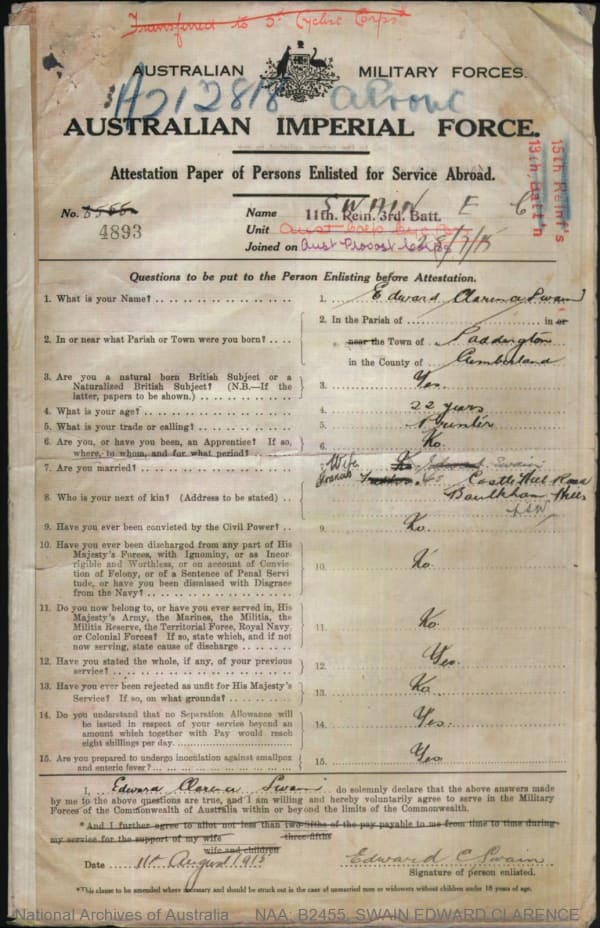 Transferred to 5th Cyclic Corps
AUSTRALIAN MILITARY FORCES.
A212818
AUSTRALIAN IMPERIAL FORCE.
Attestation Paper of Persons Enlisted for Service Abroad.
15th Reinf's
13th, Batt'n
No.
4893
Name SWAIN E C
11th. Rein. 3rd. Batt.
Unit
Joined on
Aust Provost Corps
Questions to be put to the Person Enlisting before Attestation.
1. What is your Name? 1. Edward Clarence Swain
2. In or near what Parish or Town were you born? 2. In the Parish of in or
near the Town of Paddington
in the County of Cumberland
3. Are you a natural born British Subject or a
Naturalized British Subject? (N.B.—If the
latter, papers to be shown.) 3. Yes.
4. What is your age? 4. 22 years
5. What is your trade or calling? 5. Printer
6. Are you, or have you been, an Apprentice? If so,
where, to whom, and for what period? 6. No.
7. Are you married? 7. No
Wife
Edward Swain
8. Who is your next of kin? (Address to be stated) Castle Hill Road
Baulkham Hills
NSW
9. Have you ever been convicted by the Civil Power? 9. No.
10. Have you ever been discharged from any part of His
Majesty's Forces, with Ignominy, or as Incor
rigible and Worthless, or on account of Convic
tion of Felony, or of a Sentence of Penal Servi
tude, or have you been dismissed with Disgrace
from the Navy? 10. No.
11. Do you now belong to, or have you ever served in, His
Majesty's Army, the Marines, the Militia, the
Militia Reserve, the Territorial Force, Royal Navy,
or Colonial Forces? If so, state which, and if not
now serving, state cause of discharge 11. No.
12. Have you stated the whole, if any, of your previous
service? 12. Yes.
13. Have you ever been rejected as unfit for His Majesty's
Service? If so, on what grounds? 13. No.
14. Do you understand that no Separation Allowance will
be issued in respect of your service beyond an
amount which together with Pay would reach
eight shillings per day. 14. Yes.
15. Are you prepared to undergo inoculation against smallpox
and enteric fever? 15. Yes
I, Edward Clarence Swain do solemnly declare that the above answers made
by me to the above questions are true, and I am willing and hereby voluntarily agree to serve in the Military
Forces of the Commonwealth of Australia within or beyond the limits of the Commonwealth.
*And I further agree to allot not less than two-fifths of the pay payable to me from time to time during
three-fifths
my service for the support of my wife
wife and children
Date 11th August 1915 Edward C Swain
Signature of person enlisted.
*This clause to be amended where necessary and should be struck out in the case of unmarried men or widowers without children under 18 years of age.
National Archives of Australia NAA: B2455, SWAIN EDWARD CLARENCE